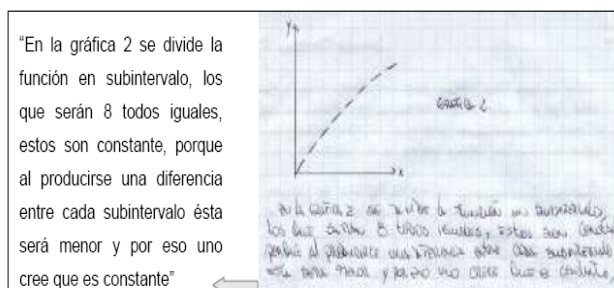 “En la gráfica 2 se divide la
función en subintervalo, los
que serán 8 todos iguales,
estos son constante, porque
al producirse una diferencia
entre cada subintervalo ésta
será menor y por eso uno
cree que es constante”
y
x
Gráfica 2
en la gráfica 2 se divide la función en subintervalo,
los que serán 8 todos iguales, estos son
porque al producirse una diferencia entre cada subintervalo
esta será menor y por eso uno cree que es constante.